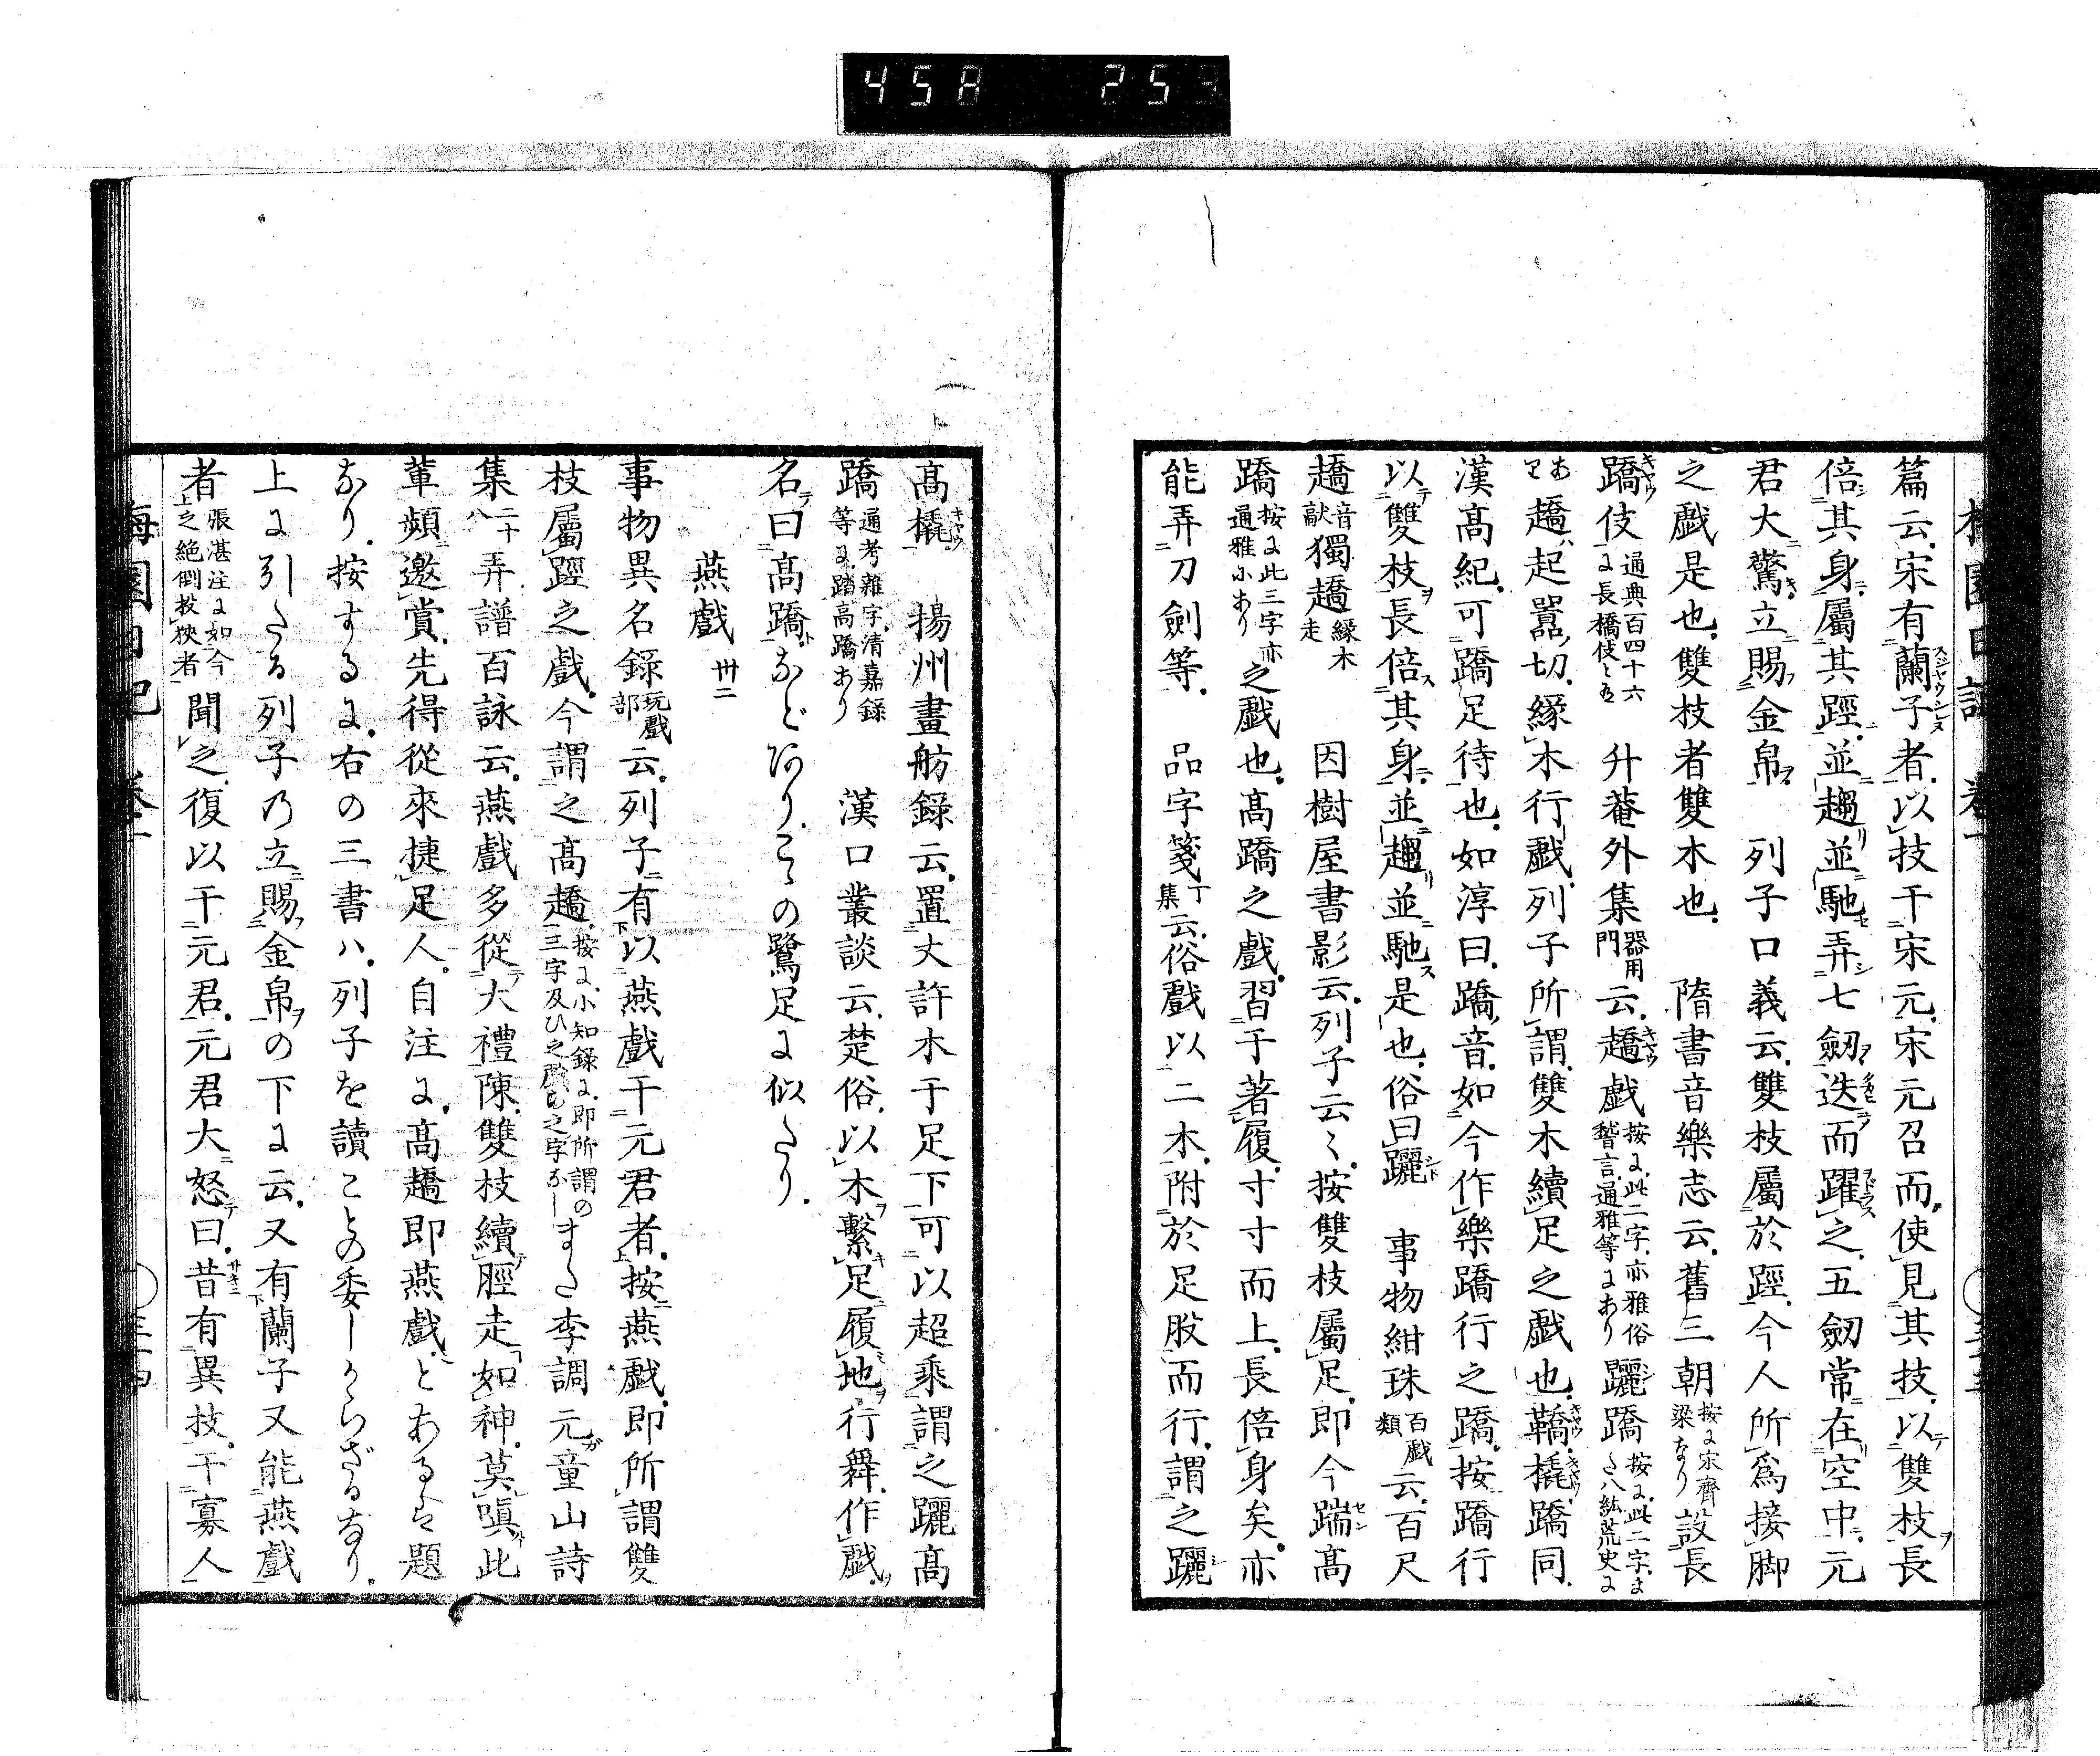 458 253
梅園日記 卷一
篇云宋有蘭子者以技干宋元宋元召而使見其技以雙枝長
倍其身屬其踁並趨並馳弄七劒迭而躍之五劒常在空中元
君大驚立賜金帛 列子口義云雙枝屬於踁今人所爲接脚
之戲是也雙枝者雙木也 隋書音樂志云舊三朝按に宋齊梁なり設長
蹻伎通典百四十六に長橋伎とあり 升菴外集器用門云趫戯按に此二字亦雅俗稽言通雅等にあり䠫蹻按に此二字また八紘荒史に
あり趫起囂切緣木行戯列子所謂雙木續足之戯也鞽橇蹻同
漢高紀可蹻足待也如淳曰蹻音如今作樂蹻行之蹻按蹻行
以雙枝長倍其身並趨並馳是也俗曰䠫 事物紺珠百戯類云百尺
趫音獻獨趫緣木走 因樹屋書影云列子云々按雙枝屬足即今踹高
蹻按に此三字亦通雅にあり之戯也高蹻之戲習于著履寸寸而上長倍身矣亦
能弄刀劍等 品字箋丁集云俗戲以二木附於足股而行謂之䠫
高橇 揚州畫舫録云置丈許木于足下可以超乘謂之䠫高
蹻通考雜字清嘉録等に踏高蹻あり 漢口叢談云楚俗以木繫足履地行舞作戯
名曰高蹻などあり こゝの鷺足に似たり
燕戲 卅二
事物異名録玩戲部云列子有以燕戲干元君者按燕戲即所謂雙
枝屬踁之戲今謂之高趫按に小知録に即所謂の三字及ひ之戲也之字なしまた李調元童山詩
集二十八弄譜百詠云燕戲多從大禮陳雙枝續脛走如神莫嗔此
輩頻邀賞先得從來捷足人自注に高趫即燕戲とあるは題
なり按するに右の三書ハ列子を讀ことの委しからざるなり
上に引たる列子の立賜金帛の下に云又有蘭子又能燕戲
者張湛注に如今之絶倒投狹者聞之復以干元君元君大怒曰昔有異技干寡人
梅園日記 卷一